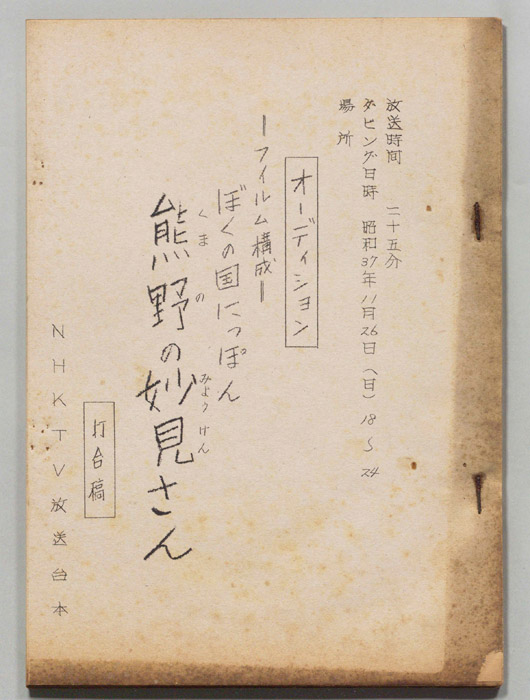 放送時間　二十五分
ダビング日時　昭和37年11月26日（日）18〜24
場所
オーディション
―フィルム構成―
ぼくの国にっぽん
くまの　みょうけん
熊野の妙見さん
打合稿
NHKTV放送台本